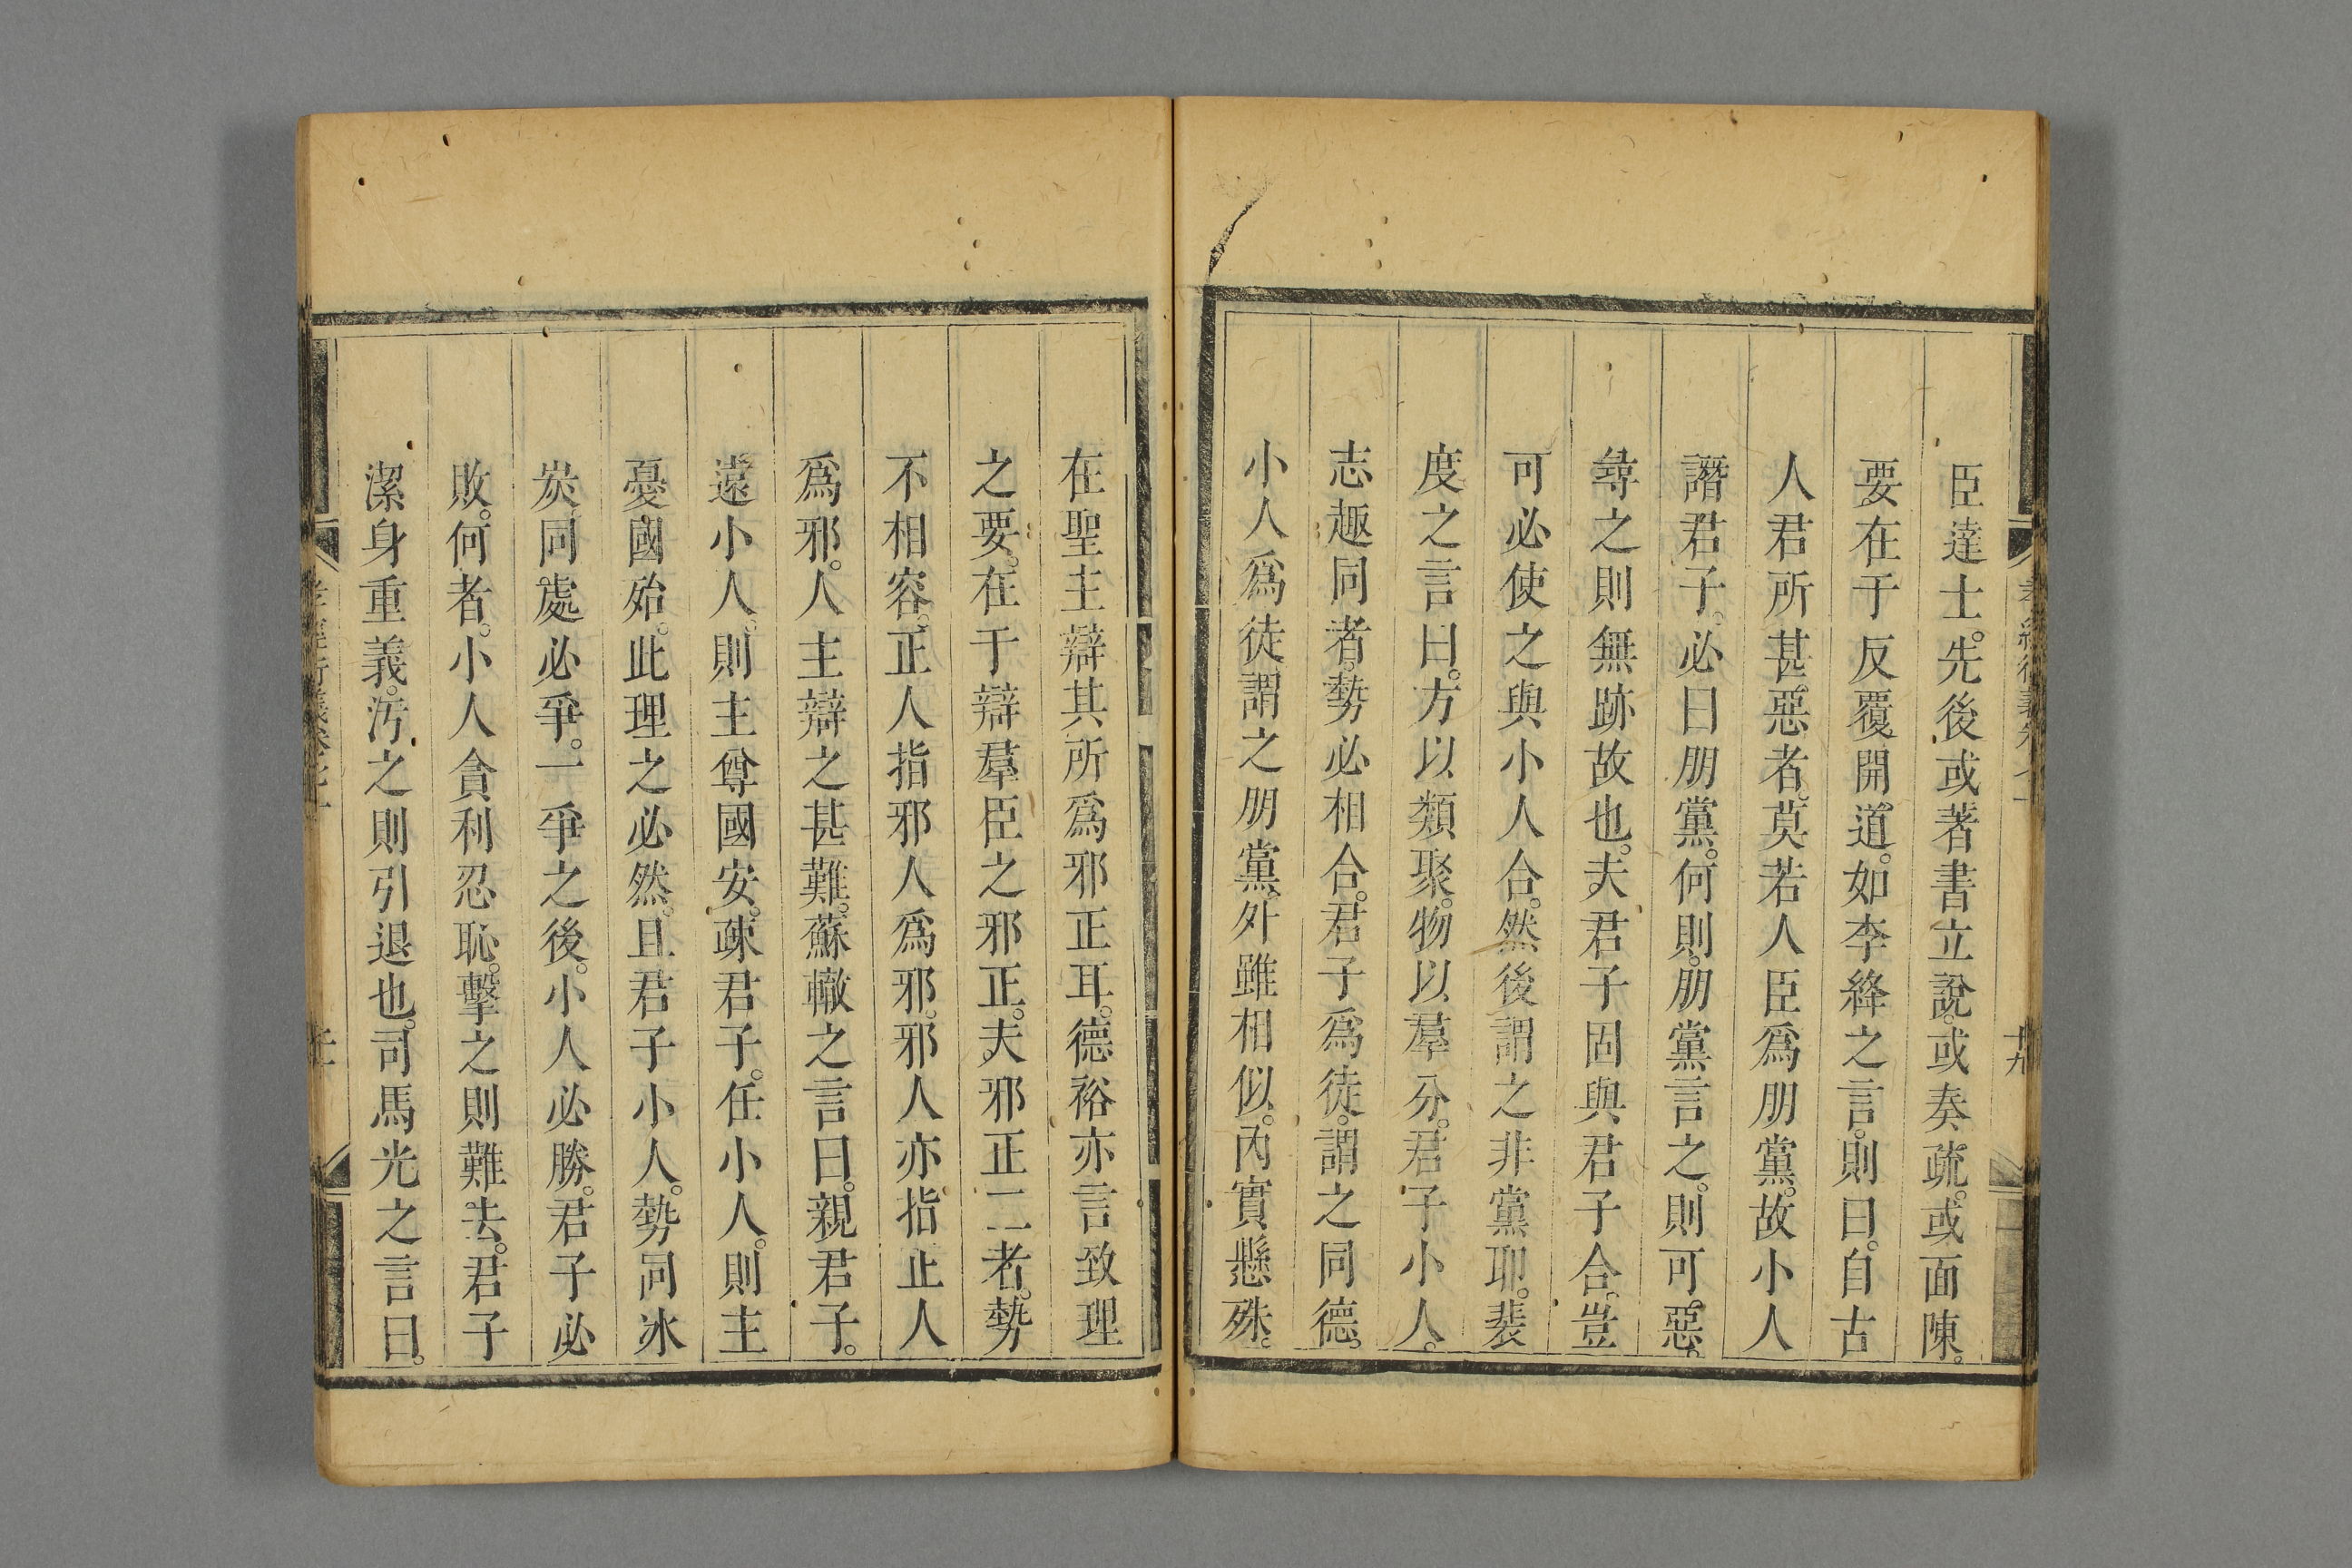 臣達士。先後或著書立說。或奏疏。或面陳。
要在于反覆開道。如李絳之言。則曰。自古
人君所甚惡者。莫若人臣爲朋黨。故小人
譖君子。必曰朋黨。何則。朋黨言之。則可惡。
尋之則無跡故也。夫君子固與君子合。豈
可必使之與小人合。然後謂之非黨耶。裴
度之言曰。方以類聚。物以羣分。君子小人。
志趣同者。勢必相合。君子爲徒。謂之同德。
小人爲徒。謂之朋黨。外雖相似。內實懸殊。
在聖主辯其所爲邪正耳。德裕亦言致理
之要。在于辯羣臣之邪正。夫邪正二者。勢
不相容。正人指邪人爲邪。邪人亦指正人
爲邪。人主辯之甚難。蘇轍之言曰。親君子。
遠小人。則主尊國安。疎君子。任小人。則主
憂國殆。此理之必然。且君子小人。勢同冰
炭。同處必爭。一爭之後。小人必勝。君子必
敗。何者。小人貪利忍恥。擊之則難去。君子
潔身重義。汚之則引退也。司馬光之言曰。